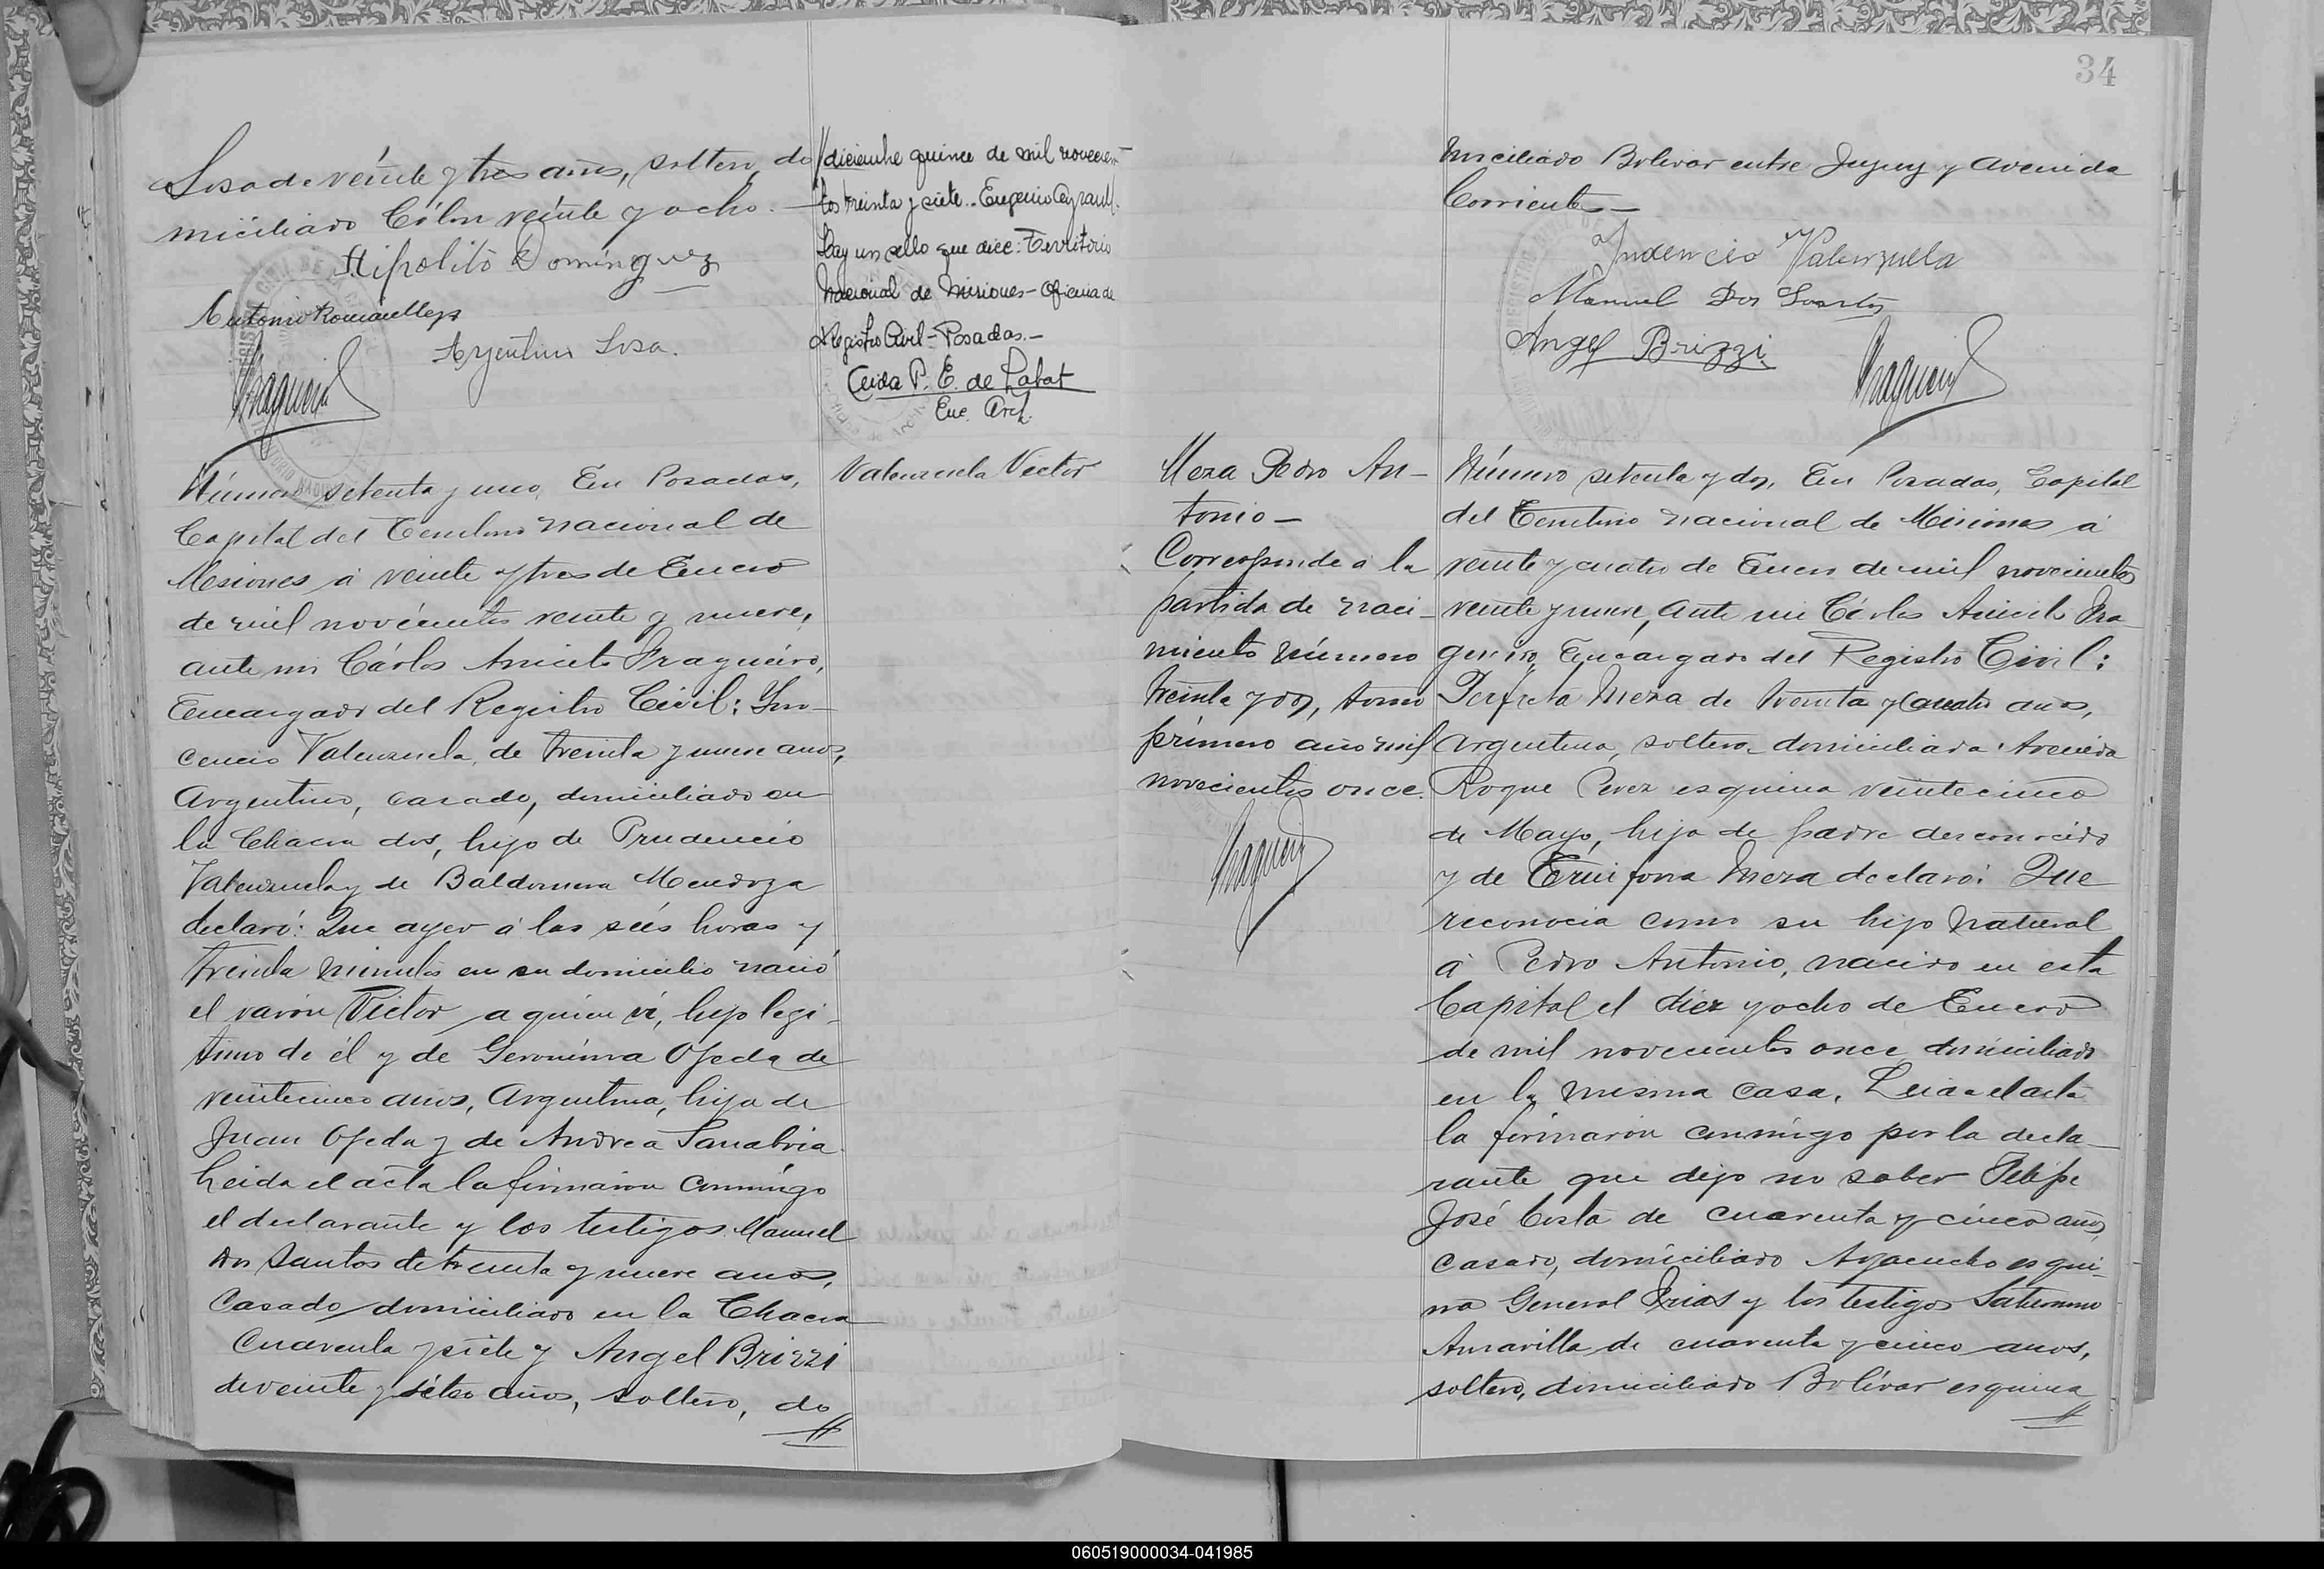 Sosa de veinte y tres años, soltero, do
miciliado Cólon veinte y ocho.
Hipolito Dominguez
Antonio
Argentino Sosa.
//diciembre quince de mil novecien-
tos treinta y siete.. Eugenio
Hay un sello que dice: Territorio
Nacional de Misiones - Oficina de
Registro Civil - Posadas. -
P. E. de Labat
Enc. Arch.
Valenzuela Victor
Número setenta y uno, En Posadas,
Capital del Territorio nacional de
Misiones á veinte y tres de Enero
de mil novécientos veinte y nueve,
ante mi Cárlos Aniceto Fragueiro,
Encargado del Registro Civil: Ino-
cencio Valenzuela, de treinta y nueve anos,
Argentino, casado, domiciliado en
la Chacra dos, hijo de Prudencio
Valenzuela y de Baldomera Mendoza
declaró: Que ayer á las seis horas y
treinta minutos en su domicilio nació
el varon Victor a quien ví, hijo legi-
timo de él y de Geronima Ojeda de
veinticinco años, Argentina, hija de
Juan Ojeda y de Andrea Sanabria.
Leida el acta la firmaron conmigo
el declarante y los testigos Manuel
Dos Santos de treinta y nueve anos,
Casado domiciliado en la Chacra
Cuarenta y siete y Angel Brizzi
de veinte y siete años, soltero, do
//
34
miciliado Bolivar entre Jujuy y Avenida
Corrientes -
Inocencio Valenzuella
Manuel Dos Santos
Angel Brizzi
Meza Pedro An-
tonio -
Corresponde a la
partida de naci-
miento número
treinta y dos, tomo
primero año mil
novecientos once.
Número setenta y dos, En Posadas, Capital
del Territorio nacional de Misiones á
veinte y cuatro de Enero de mil novecientos
veinte y nueve, ante mi Cárlos Aniceto Fra
gueiro, Encargado del Registro Civil:
Perfecta Meza de treinta y cuatro anos,
Argentina, soltera, domiciliada Avenida
Roque Perez esquina veinticinco
de Mayo, hija de padre desconocido
y de Meza declaró: Que
reconocia como su hijo natural
á Pedro Antonio, nacido en esta
Capital el diez y ocho de Enero
de mil novecientos once domiciliado
en la misma casa. Leida el acta
la firmaron conmigo por la decla-
rante que dijo no saber Felipe
José Costa de cuarenta y cinco años,
casado, domiciliado Ayacucho esqui-
na General Frias y los testigos Saturnino
Amarilla de cuarenta y cinco anos,
soltero, domiciliado Bolívar esquina
//
060519000034-041985